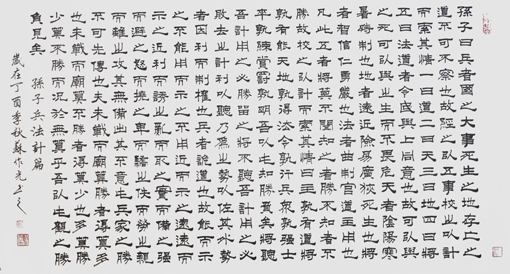 孫子曰兵者國之大事死生之地存亡之
道不可不察也故經之以五事校之以計
而索其情一曰道二曰天三曰地四曰將
五曰法道者令民與上同意也故可以與
之死可以與之生而不畏危天者陰陽寒
暑時制也地者遠近險易廣狹死生也將
者智信仁勇嚴也法者曲制官道主用也
凡此五者將莫不聞知之者勝不知者不
勝故校之以計而索其情曰主孰有道將
孰有能天地孰得法令孰行兵眾孰強士
卒孰練賞罰孰明吾以此知勝負矣將聽
吾計用之必勝留之將不聽吾計用之必
敗去之計利以聽乃為之勢以佐其外勢
者因利而制權也兵者詭道也故能而示
之不能用而示之不用近而示之遠遠而
示之近利而誘之亂而取之實而備之強
而避之怒而撓之卑而驕之佚而勞之親
而離之攻其無備出其不意此兵家之勝
不可先傳也夫未戰而廟算勝者得算多
也未戰而廟算不勝者得算少也多算勝
少算不勝而況於無算乎吾以此觀之勝
負見矣 孫子兵法計篇
歲在丁酉季秋蘇作